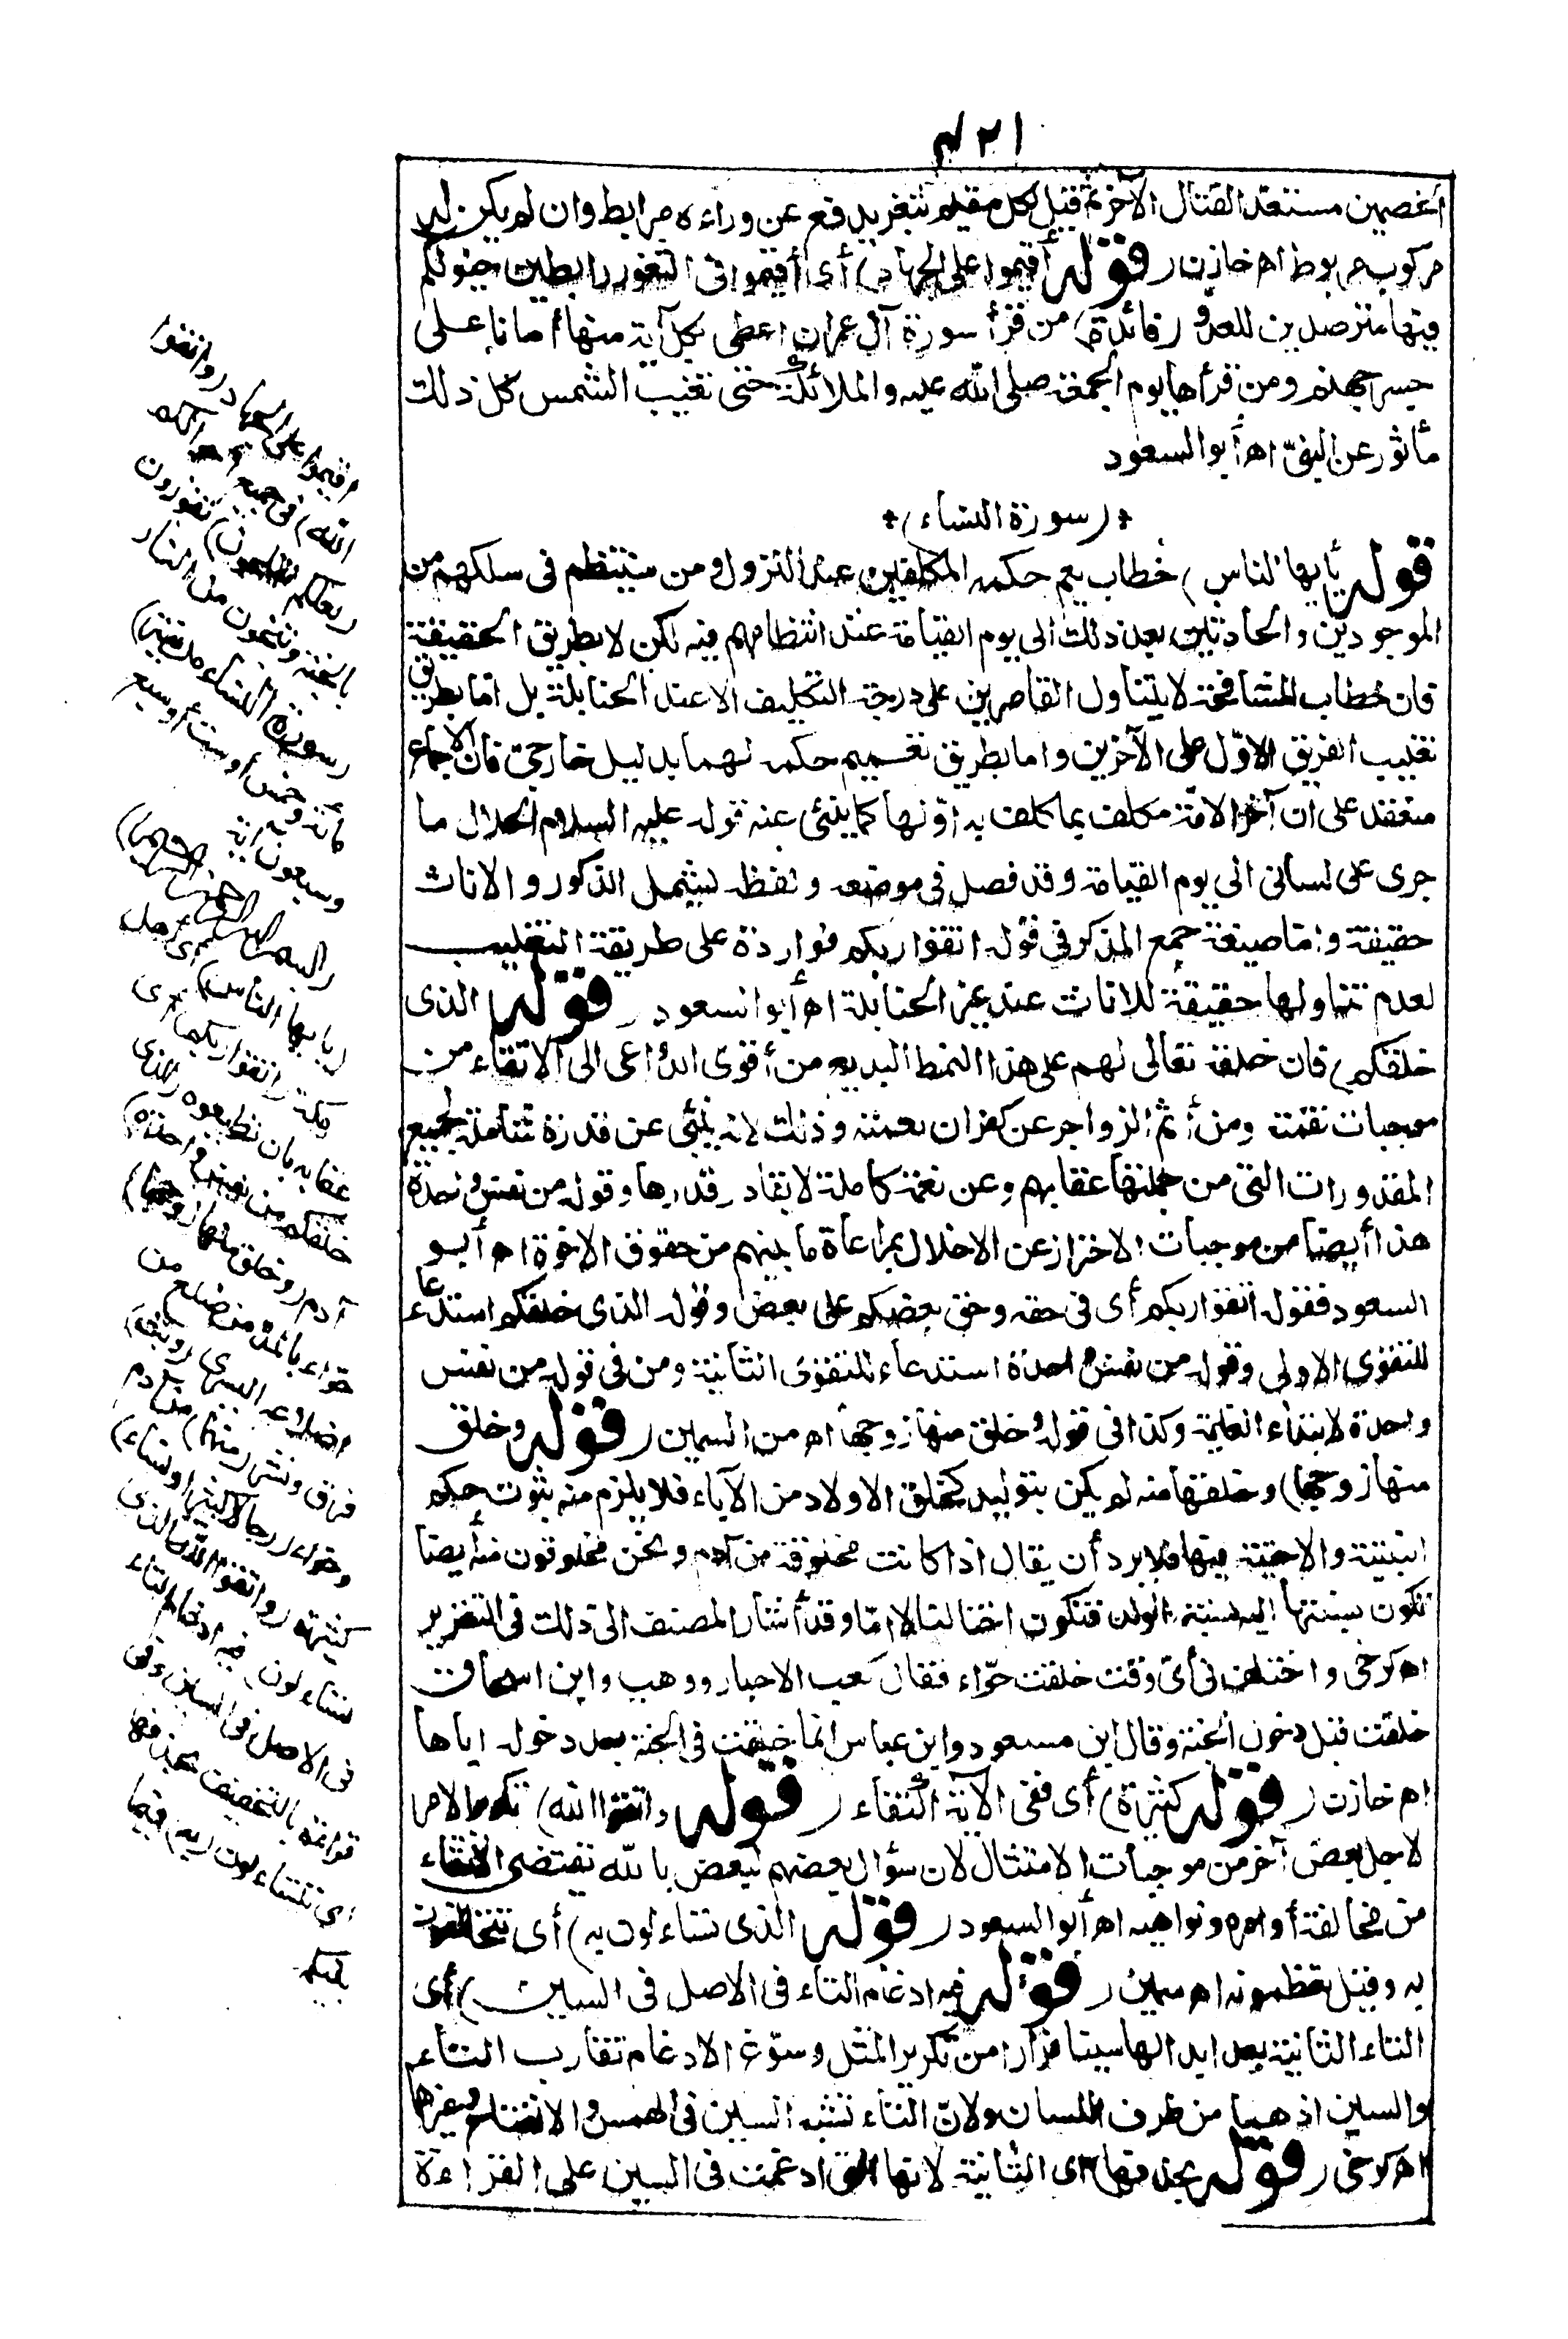 ٤٢١
الخصمين مستعد القتال الآخر ثم قيل لكل مقيم بثغر يدفع عن وراءه مرابط وان لم يكن له
مركوب مربوط اه خازن (قوله أقيموا على الجهاد) أى أقيموا فى الثغور رابطين خيولكم
فيها مترصدين للعدو (فائدة) من قرأ سورة آل عمران اعطى بكل آية منها أمانا على
جسر جهنم ومن قرأها يوم الجمعة صلى الله عليه والملائكة حتى تغيب الشمس كل ذلك
مأثور عن النبىّ اه أبوالسعود
(سورة النساء)
قوله يأيها الناس) خطاب يعم حكمه المكلفين عند النزول ومن سينتظم فى سلكهم من
الموجودين والحادثين بعد ذلك الى يوم القيامة عند انتظامهم فيه لكن لا بطريق الحقيقة
فان خطاب المشافهة لا يتناول القاصرين على درجة التكليف الا عند الحنابلة بل اما بطريق
تغليب الفريق الاوّل على الآخرين واما بطريق تعميم حكمه لهما بدليل خارجىّ فان الاجماع
منعقد على ان آخر الامّة مكلف بما كلف به اوّلها كما ينبئ عنه قوله عليه السلام الحلال ما
جرى على لسانى الى يوم القيامة وقد فصل فى موضعه ولفظه يشمل الذكور والاناث
حقيقة وامّا صيغة جمع المذكر فى قوله اتقوا ربكم فواردة على طريقة التغليب
لعدم تناولها حقيقة للاناث عند غير الحنابلة اه أبوالسعود (قوله الذى
خلقكم) فان خلقه تعالى لهم على هذا النمط البديع من أقوى الدواعى الى الاتقاء من
موجبات نقمته ومن أتم الزواجر عن كفران نعمته وذلك لانه ينبئ عن قدرة شاملة لجميع
المقدورات التى من جملتها عقابهم وعن نعمة كاملة لا يقادر قدرها وقوله من نفس واحدة
هذا أيضا من موجبات الاحتراز عن الاخلال بمراعاة ما بينهم من حقوق الاخوة اه أبو
السعود فقوله اتقوا ربكم أى فى حقه وحق بعضكم على بعض وقوله الذى خلقكم استدعاء
للتقوى الاولى وقوله من نفس واحدة استدعاء للتقوى الثانية ومن فى قوله من نفس
واحدة لابتداء الغاية وكذا فى قوله وخلق منها زوجها اه من السمين (قوله وخلق
منها زوجها) وخلقها منه لم يكن بتوليد كخلق الاولاد من الآباء فلا يلزم منه ثبوت حكم
البنتية والاختية فيها فلا يرد أن يقال اذا كانت مخلوقة من آدم ونحن مخلوقون منه أيضا
تكون نسبتها اليه نسبة الولد فتكون اختا لنا لا امّا وقد أشار المصنف الى ذلك فى التقرير
اه كرخى واختلف فى أىّ وقت خلقت حوّاء فقال كعب الاحبار ووهب وابن اسحاق
خلقت قبل دخول الجنة وقال ابن مسعود وابن عباس انما خلقت فى الجنة بعد دخوله اياها
اه خازن (قوله كثيرة) أى ففى الآية اكتفاء (قوله واتقوا الله) تكرير الامر
لاجل بعض آخر من موجبات الامتثال لان سؤال بعضهم لبعض بالله يقتضى الاتقاء
من مخالفة أوامره ونواهيه اه أبوالسعود (قوله الذى تساءلون به) أى تتحالفون
به وقيل تعظمونه اه سمين (قوله فيه ادغام التاء فى الاصل فى السين) أى
التاء الثانية بعد ابدالها سينا فرارا من تكرير المثل وسوّغ الادغام تقارب التاء
والسين اذ هما من طرف اللسان ولانّ التاء تشبه السين فى الهمس والانفتاح وغيرها
اه كرخى (قوله بحذفها) أى الثانية لانها التى ادغمت فى السين على القراءة
اقيموا على الجهاد (واتقوا
الله) فى جميع احوالكم
(لعلكم تفلحون) تفوزون
بالجنة وتنجون من النار
(سورة النساء مدنية)
مائة وخمس أو ست أو سبع
وسبعون آية
(بسم الله الرحمن الرحيم)
(يا يها الناس) أى أهل
مكة (اتقوا ربكم) أى
عقابه بان تطيعوه (الذى
خلقكم من نفس واحدة)
آدم (وخلق منها زوجها)
حوّاء بالمدّ من ضلع من
اضلاعه اليسرى (وبث)
فرّق ونشر (منهما) من آدم
وحوّاء (رجالا كثيرا ونساء)
كثيرة (واتقوا الله الذى
تساءلون) فيه ادغام التاء
فى الاصل فى السين وفى
قراءة بالتخفيف بحذفها
اى تتساءلون (به) فيما
بينكم